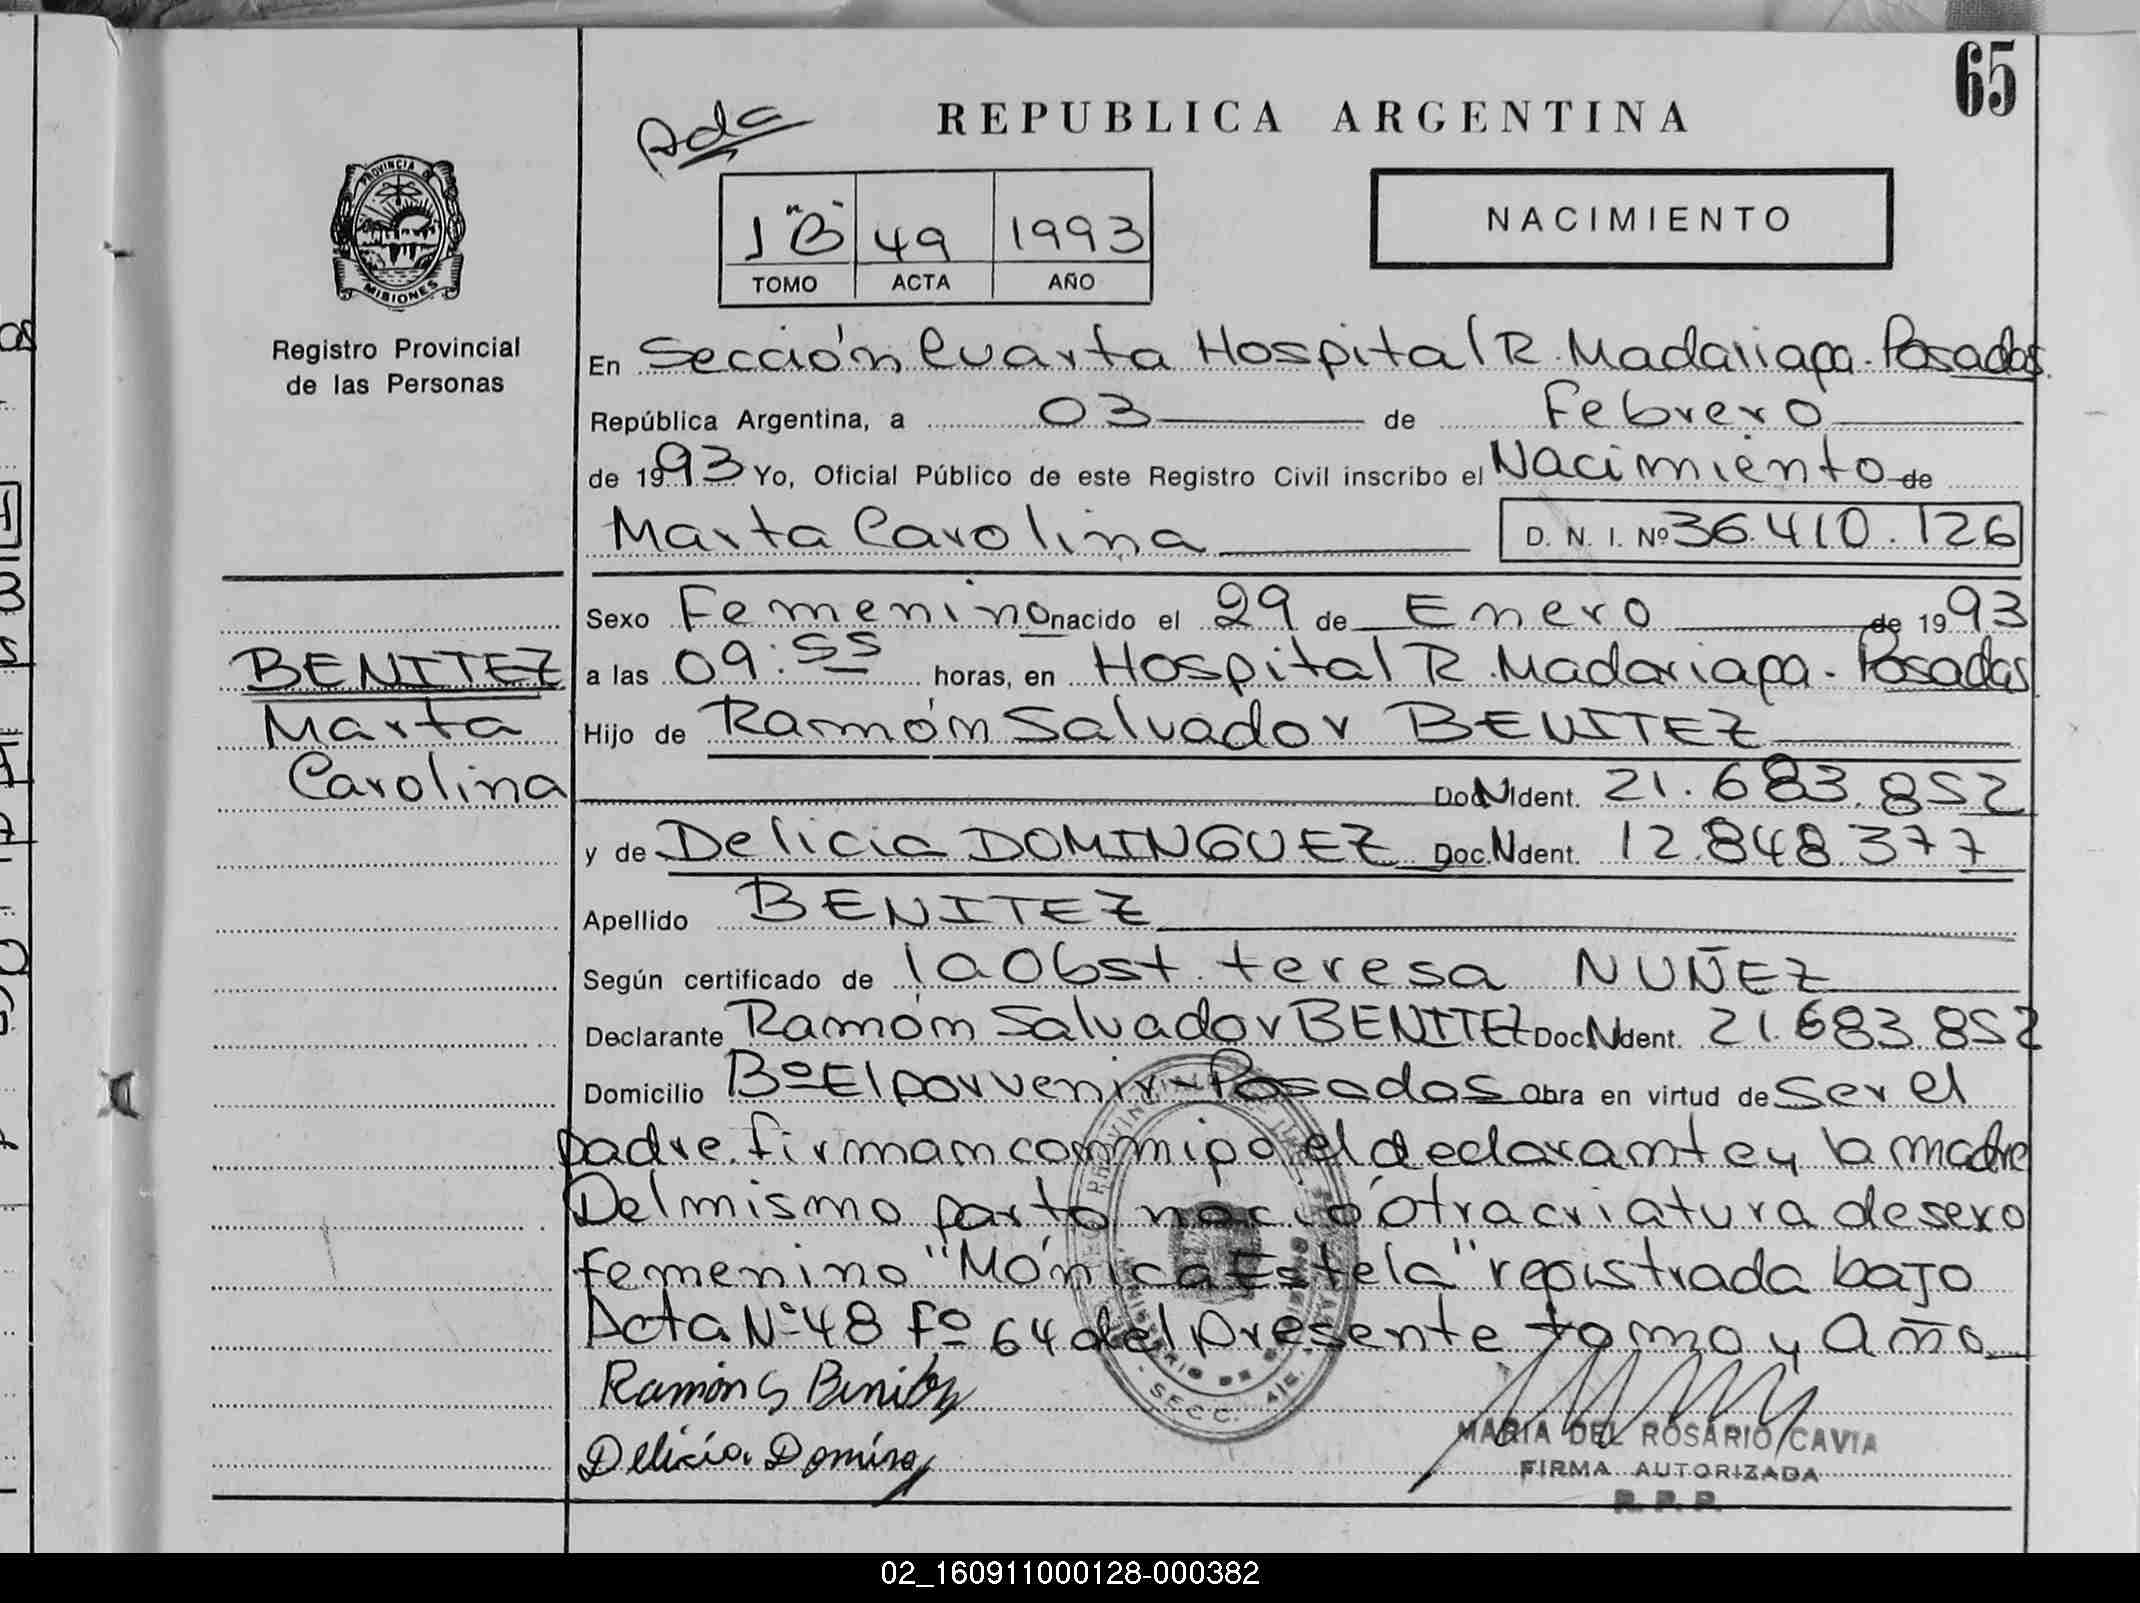 65
Ada
REPUBLICA ARGENTINA
PROVINCIA DE
MISIONES
1 "B" 49 1993
TOMO ACTA AÑO
NACIMIENTO
Registro Provincial
de las Personas
En Sección Cuarta Hospital R. Madariaga - Posadas
República Argentina, a 03 de Febrero
de 1993 Yo, Oficial Público de este Registro Civil inscribo el Nacimiento de
Marta Carolina D. N. I. Nº 36.410.126
Sexo Femenino nacido el 29 de Enero de 1993
BENITEZ
Marta
Carolina
a las 09:55 horas, en Hospital R. Madariaga - Posadas
Hijo de Ramón Salvador BENITEZ
Doc.N.Ident. 21.683.852
y de Delicia DOMINGUEZ Doc.N.Ident. 12.848.377
Apellido BENITEZ
Según certificado de la Obst. teresa NUÑEZ
Declarante Ramón Salvador BENITEZ Doc.N.Ident. 21.683.852
Domicilio Bº El porvenir - Posadas Obra en virtud de Ser el
padre. firman conmigo el declarante y la madre
Del mismo parto nació otra criatura de sexo
femenino "Mónica Estela" registrada bajo
Acta Nº 48 Fº 64 del presente tomo y año
Ramón S Benitez
Delicia Doming
MARIA DEL ROSARIO CAVIA
FIRMA AUTORIZADA
R. P. P.
SECC. 4ta.
02_160911000128-000382